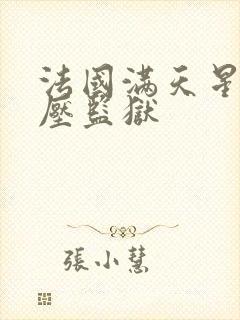 法國滿天星
壓監獄
張小慧